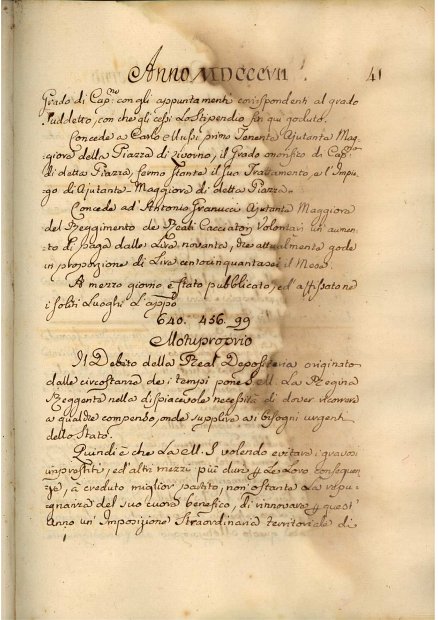 Anno MDCCCVII 41
Grado di Cap.no con gli appuntamenti corrispondenti al grado
suddetto, con che gli cessi lo stipendio fin qui goduto.
Concede a Carlo primo Tenente Ajutante Mag-
:giore della Piazza di Livorno, il Grado onorifico di Cap.no
di detta Piazza, fermo stante il suo Trattamento, e l'Impie-
go di Ajutante-Maggiore di detta Piazza.
Concede ad Antonio Ajutante Maggiore
del Reggimento de Reali Cacciatori Volontari un aumen-
to di paga dalle Lire novanta, che attualmente gode
in proporzione di Lire centocinquantasei il Mese.
A mezzo giorno è stato pubblicato, ed affissato ne
i soliti Luoghi l'appo
640. 456. 99
Motuproprio
Il Debito della Real Depositeria originato
dalle circostanze de i tempi pone S. M. La Regina
Reggente nella dispiacevole necessità di dover ricorrere
a qualche compenso, onde supplire ai bisogni urgenti
dello Stato.
Quindi è che La M. S. volendo evitare i gravosi
imprestiti, ed altri mezzi più duri p le Loro conseguen-
ze, à creduto miglior partito, non ostante La ripu-
gnanza del suo cuore benefico, di rinnovare p quest'
Anno un' Imposizione Straordinaria territoriale di